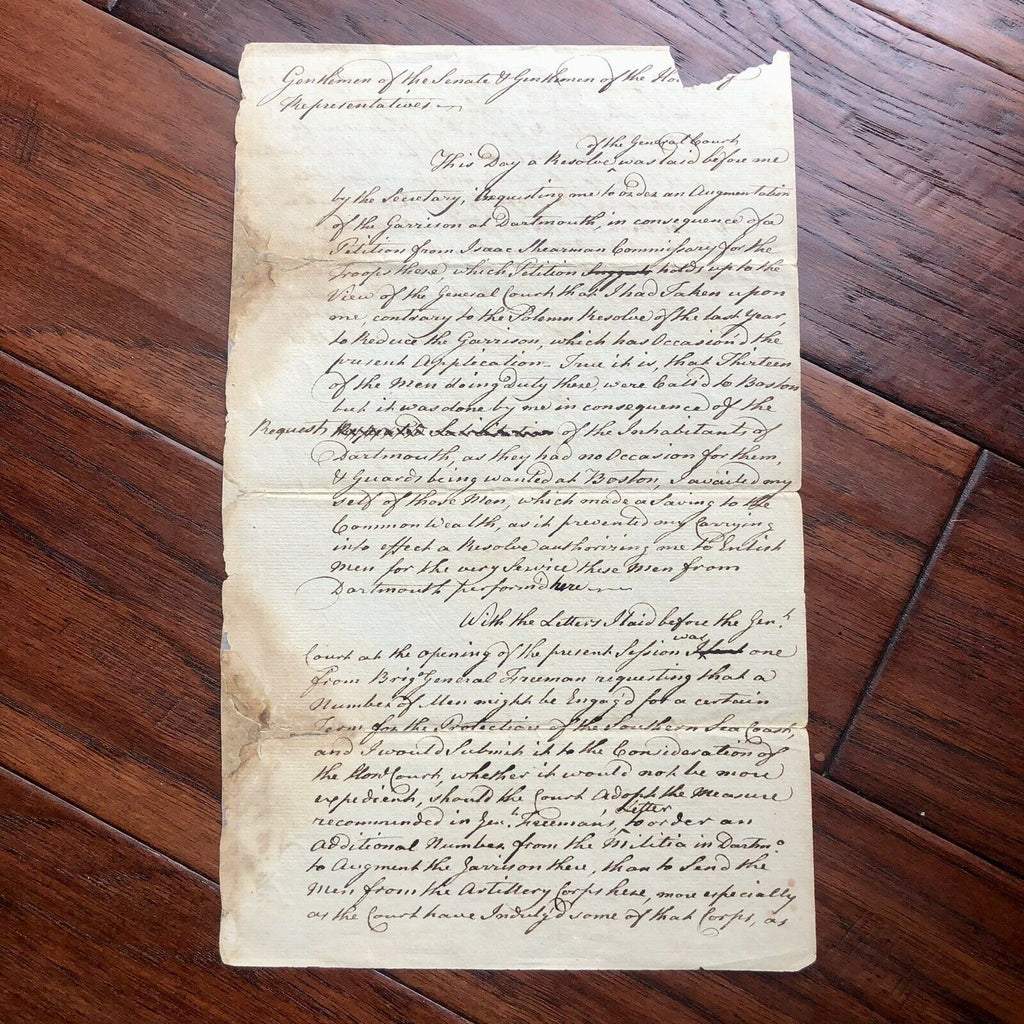 Gentlemen of the Senate & Gentlemen of the Hou of
Representatives
of the General Court
This Day a Resolve ‸ was laid before me
by the Secretary, Requesting me to order an Augmentation
of the Garrison at Dartmouth, in consequence of a
Petition from Isaac Shearman Commissary for the
Troops there, which Petition holds up to the
View of the General Court that I had Taken upon
me, contrary to the Solemn Resolve of the last Year,
to Reduce the Garrison, which has Occasion'd the
present Application. True it is, that Thirteen
of the Men doing Duty there, were Call'd to Boston
but it was done by me in consequence of the
Request of the Inhabitants of
Dartmouth, as they had no Occasion for them,
& Guards being wanted at Boston, I availed my
self of those Men, which made a Saving to the
Common Wealth, as it prevented my Carrying
into effect a Resolve authorizing me to Enlist
Men for the very Service these Men from
Dartmouth perform'd here
With the Letters I laid before the Genl.
was
Court at the opening of the present Session one
from Brigr. General Freeman requesting that a
Number of Men might be Engag'd for a certain
Term for the Protection of the Southern Sea Coast,
and I would Submit it to the Consideration of
the Honl. Court, whether it would not be more
expedient, should the Court Adopt the Measure
Letter
recommended in Genl. Freeman's, ‸ to order an
Additional Number from the Militia in Dartmo.
to Augment the Garrison there, than to Send the
Men from the Artillery Corps here, more especially
as the Court have Indulg'd some of that Corps, as